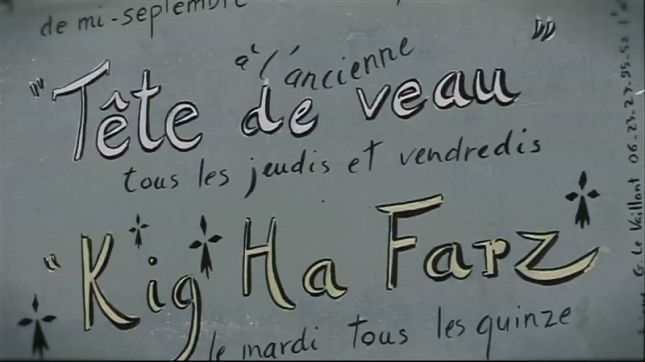 de mi-septembre
à l'ancienne
" Tête de veau "
tous les jeudis et vendredis
" Kig Ha Farz
le mardi tous les quinze
G. Le Vaillant 06-23-23-95-52